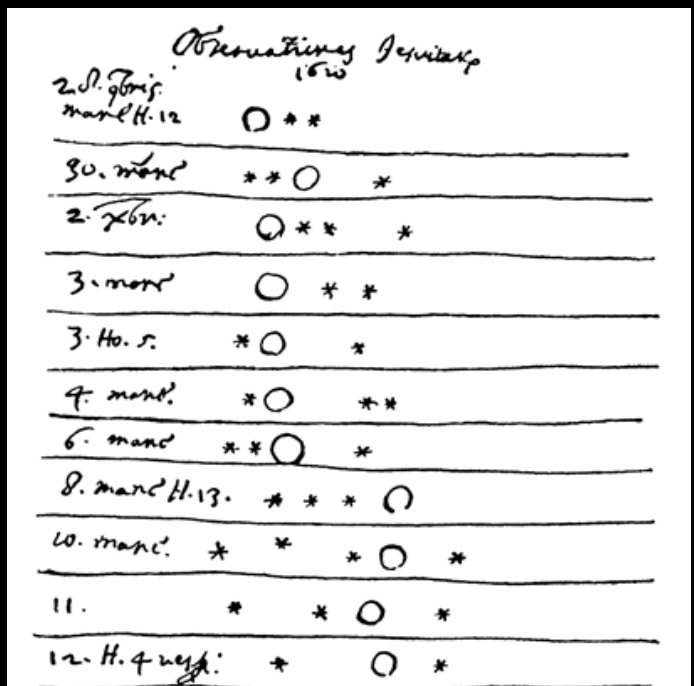 Observationes Jesuitarū
1610
2. d. 9bris.
mane H. 12
30. mane
2. Xbr:
3. mane
3. Ho. 5.
4. mane.
6. mane
8. mane H. 13.
10. mane.
11.
12. H. 4 vesp: